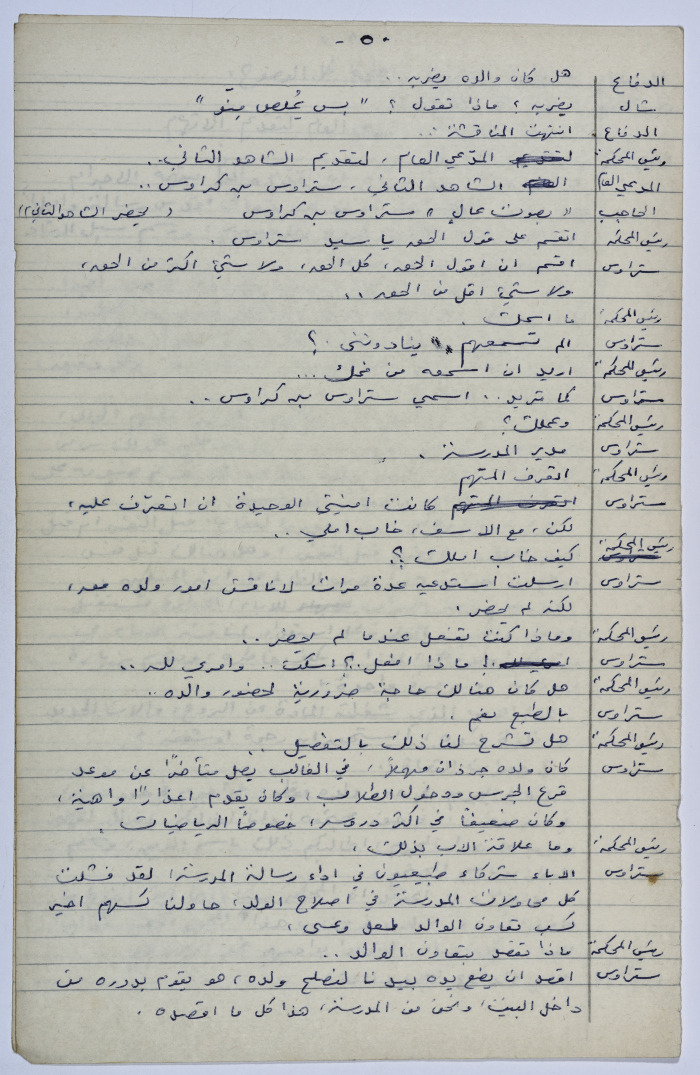 - ٥ -
الدفاع هل كان والده يضربه ..
شال يضربه ؟ ماذا تقول ؟ " بس يُخلص مِنّو "
الدفاع . انتهت المناقشة ..
رئيس المحكمة المدّعي العام ، لتقديم الشاهد الثاني ..
المدعي العام الشاهد الثاني ، ستراوس بن كراوس ..
الحاجب " بصوت عالٍ " ستراوس بن كراوس ( يحضر الشاهد الثاني )
رئيس المحكمة اتقسم على قول الحق يا سيد ستراوس .
ستراوس اقسم ان اقول الحق ، كل الحق ، ولا شيئ اكثر من الحق ،
ولا شيئ اقل من الحق ..
رئيس المحكمة ما اسمك .
ستراوس الم تسمعهم ينادونني . ؟
رئيس المحكمة اريد ان اسمعه من فمك ...
ستراوس كما تريد .. اسمي ستراوس بن كراوس ..
رئيس المحكمة وعملك ؟
ستراوس مدير المدرسة .
رئيس المحكمة اتعرف المتهم
ستراوس كانت امنيتي الوحيدة ان اتعرّف عليه ،
لكن ، مع الاسف ، خاب املي ..
رئيس المحكمة كيف خاب املك ؟ .
ستراوس ارسلت استدعيه عدة مرات لاناقش امور ولده معه ،
لكنه لم يحضر .
رئيس المحكمة وماذا كنت تفعل عندما لم يحضر ..
ستراوس ! ماذا افعل . ؟ اسكت .. وامري لله ..
رئيس المحكمة هل كان هنالك حاجة ضرورية لحضور والده ..
ستراوس بالطبع نعم .
رئيس المحكمة هل تشرح لنا ذلك بالتفصيل ..
ستراوس كان ولده جرذان مهملاً ، في الغالب يصل متأخرًا عن موعد
قرع الجرس ودخول الطلاب ، وكان يقدم اعذارًا واهية ،
وكان ضعيفاً في اكثر دروسه ، خصوصاً الرياضيات .
رئيس المحكمة وما علاقة الاب بذلك ،
ستراوس الاباء شركاء طبيعيون في اداء رسالة المدرسة ، لقد فشلت
كل محاولات المدرسة في اصلاح الولد ، حاولنا كسهم اخير
كسب تعاون الوالد لعل وعسى ،
رئيس المحكمة ماذا تقصد بتعاون الوالد ..
ستراوس اقصد ان يضع يده بيدنا لنصلح ولده ، هو يقوم بدوره من
داخل البيت ، ونحن من المدرسة ، هذا كل ما اقصده .